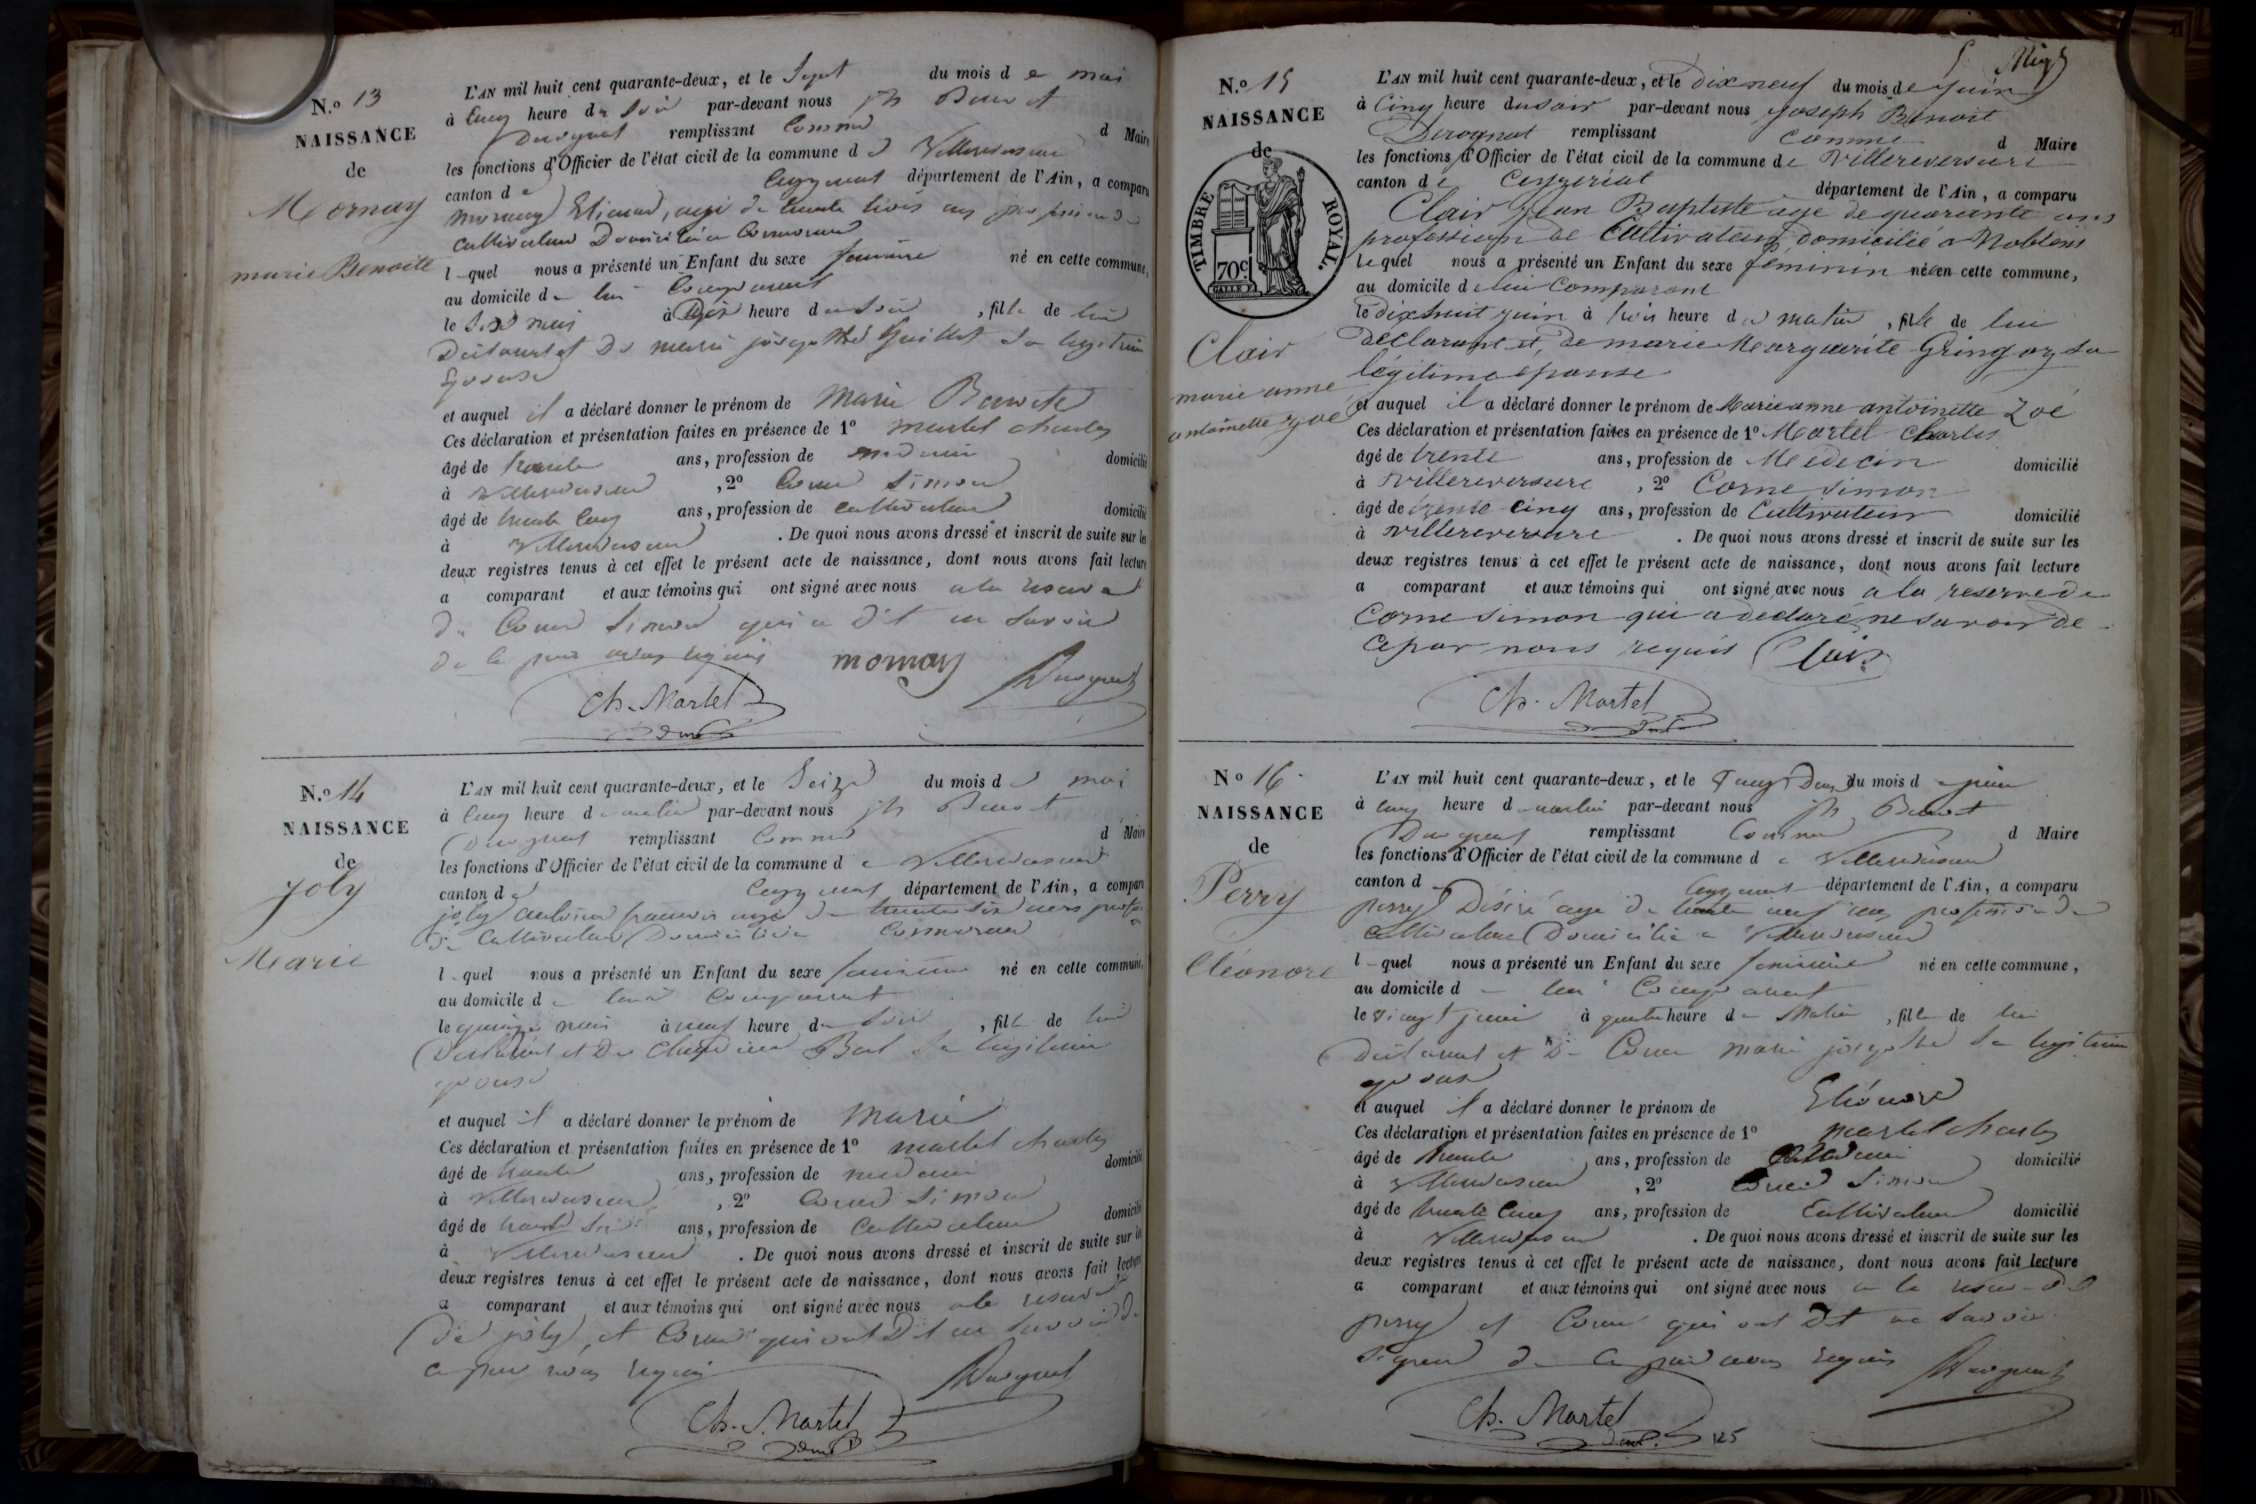 N.o 13
NAISSANCE
de
Mornay
marie Benoite
L'AN mil huit cent quarante-deux, et le Sept du mois de mai
à Cinq heure du Soir par-devant nous jh Benoit
remplissant Comme d Maire
les fonctions d'Officier de l'état civil de la commune de Villereversure
canton de Ceyzeriat département de l'Ain, a comparu
mornay Etienne, agé de trente trois ans profession de
Cultivateur Domicilié a
l quel nous a présenté un Enfant du sexe feminin né en cette commune,
au domicile de lui Comparant
le Six mai à Dix heure du Soir, fille de lui
Déclarant et De marie josephte Guillot Sa legitime
Epouse
et auquel il a déclaré donner le prénom de Marie Benoite
Ces déclaration et présentation faites en présence de 1o martel charles
âgé de trente ans, profession de medecin domicilié
à Villereversure, 2o Corne Simon
âgé de trente Cinq ans, profession de Cultivateur domicilié
à Villereversure. De quoi nous avons dressé et inscrit de suite sur les
deux registres tenus à cet effet le présent acte de naissance, dont nous avons fait lecture
a comparant et aux témoins qui ont signé avec nous a la reserve
de Corne Simon qui a Dit ne Savoir
de ce par nous requis mornay
Ch. Martel
N.o 14
NAISSANCE
de
joly
Marie
L'AN mil huit cent quarante-deux, et le Seize du mois de mai
à Cinq heure du matin par-devant nous jh Benoit
remplissant Comme d Maire
les fonctions d'Officier de l'état civil de la commune de Villereversure
canton de Ceyzeriat département de l'Ain, a comparu
joly antoine francois agé de trente Six ans profession
de Cultivateur Domicilié a
l quel nous a présenté un Enfant du sexe feminin né en cette commune,
au domicile de lui Comparant
le quinze mai à neuf heure du Soir, fille de lui
Declarant et De Sa legitime
epouse
et auquel il a déclaré donner le prénom de Marie
Ces déclaration et présentation faites en présence de 1o martel charles
âgé de trente ans, profession de medecin domicilié
à Villereversure, 2o Corne Simon
âgé de ans, profession de Cultivateur domicilié
à Villereversure. De quoi nous avons dressé et inscrit de suite sur les
deux registres tenus à cet effet le présent acte de naissance, dont nous avons fait lecture
a comparant et aux témoins qui ont signé avec nous a la reserve
de joly et Corne qui ont Dit ne Savoir de
ce par nous requis
Ch. Martel
N.o 15
NAISSANCE
de
TIMBRE ROYAL.
70c
Clair
marie anne
antoinette zoé
L'AN mil huit cent quarante-deux, et le Dix neuf du mois de juin
à Cinq heure du soir par-devant nous joseph Benoit
remplissant Comme d Maire
les fonctions d'Officier de l'état civil de la commune de Villereversure
canton de Ceyzériat département de l'Ain, a comparu
Clair jean Baptiste age de quarante ans
profession de Cultivateur domicilié a Noblens
le quel nous a présenté un Enfant du sexe féminin né en cette commune,
au domicile de lui Comparant
le dixhuit juin à trois heure du matin, fille de lui
déclarant et de marie Marguerite Gringoz sa
légitime épouse
et auquel il a déclaré donner le prénom de Marie anne antoinette Zoé
Ces déclaration et présentation faites en présence de 1o Martel Charles
âgé de trente ans, profession de Medecin domicilié
à Villereversure, 2o Corne simon
âgé de trente-cinq ans, profession de Cultivateur domicilié
à villereversure. De quoi nous avons dressé et inscrit de suite sur les
deux registres tenus à cet effet le présent acte de naissance, dont nous avons fait lecture
a comparant et aux témoins qui ont signé avec nous a la reserve de
Corne simon qui a declaré ne savoir de
ce par nous requis Clair
Ch. Martel
No 16
NAISSANCE
de
Perry
Cléonore
L'AN mil huit cent quarante-deux, et le du mois de juin
à Cinq heure du matin par-devant nous jh Benoit
remplissant Comme d Maire
les fonctions d'Officier de l'état civil de la commune de Villereversure
canton d Ceyzeriat département de l'Ain, a comparu
perry Désiré agé de trente neuf ans profession de
Cultivateur Domicilié a Villereversure
l quel nous a présenté un Enfant du sexe feminin né en cette commune,
au domicile d lui Comparant
le vingt juin à quatre heure du Matin, fille de lui
Declarant et De Corne marie josephte Sa legitime
epouse
et auquel il a déclaré donner le prénom de Eléonore
Ces déclaration et présentation faites en présence de 1o martel charles
âgé de trente ans, profession de medecin domicilié
à Villereversure, 2o Corne Simon
âgé de trente Cinq ans, profession de Cultivateur domicilié
à Villereversure. De quoi nous avons dressé et inscrit de suite sur les
deux registres tenus à cet effet le présent acte de naissance, dont nous avons fait lecture
a comparant et aux témoins qui ont signé avec nous a la reserve de
perry et Corne qui ont Dit ne Savoir
Signer de ce par nous requis
Ch. Martel
125